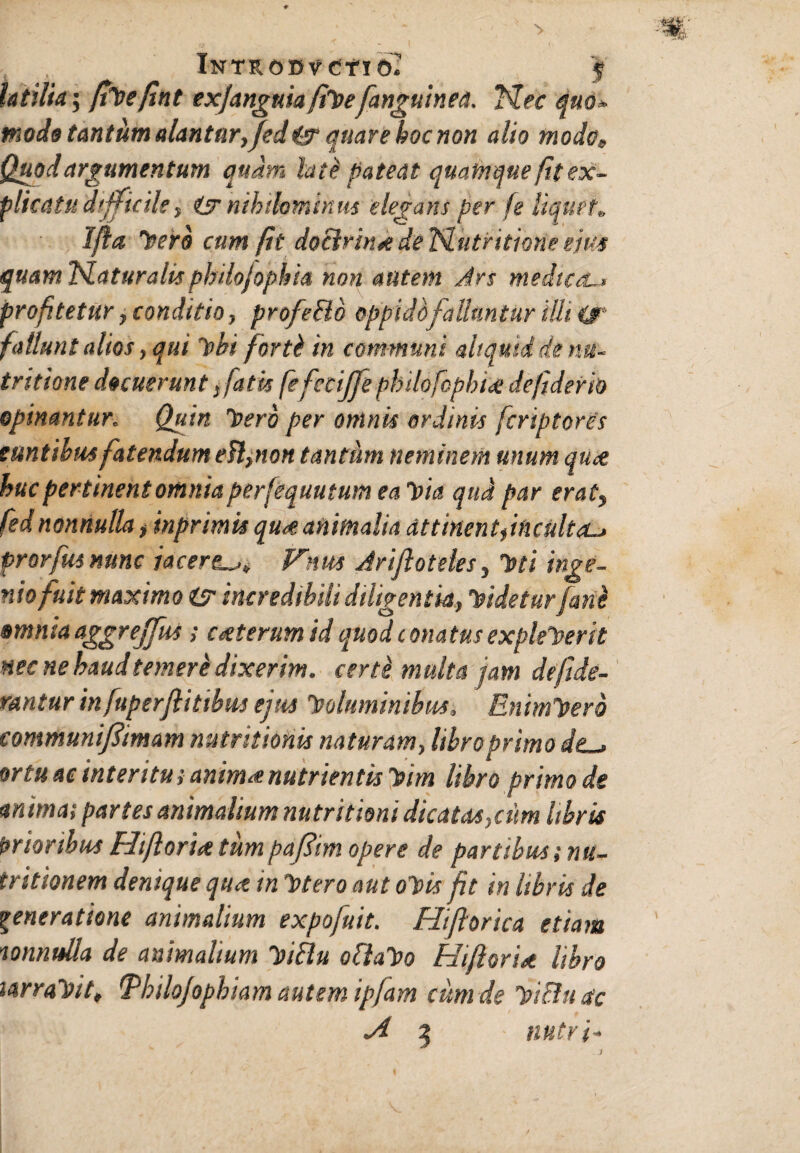 INTRODVCTIO. 5
latilia; ſive ſint exſanguia ſive ſanguinea. Nec quo-
modo tantùm alantur, ſed & quare hoc non alio modo.
Quod argumentum quàm latè pateat quamque ſit ex-
plicatu difficile, & nihilominus elegans per ſe liquet.
Iſta verò cum ſit doctrinæ de Nutritione ejus
quam Naturalis philoſophia non autem Ars medica
profitetur, conditio, profectò oppidò falluntur illi &
fallunt alios, qui vbi fortè in communi aliquid de nu-
tritione docuerunt, ſatis ſe feciſſe philoſophiæ deſiderio
opinantur. Quin verò per omnis ordinis ſcriptores
euntibus fatendum eſt, non tantùm neminem unum quæ
huc pertinent omnia perſequutum ea via quâ par erat,
ſed nonnulla, inprimis quæ animalia attinent, inculta
prorſus nunc jacere. Vnus Ariſtoteles, vti inge-
nio fuit maximo & incredibili diligentia, videtur ſanè
omnia aggreſſus; cæterum id quod conatus expleverit
nec ne haud temerè dixerim. certè multa jam deſide-
rantur in ſuperſtitibus ejus voluminibus. Enimverò
communiſſimam nutritionis naturam, libro primo de
ortu ac interitu; animæ nutrientis vim libro primo de
anima; partes animalium nutritioni dicatas, cùm libris
prioribus Hiſtoriæ tùm paſſim opere de partibus; nu-
tritionem denique quæ in vtero aut ovis fit in libris de
generatione animalium expoſuit. Hiſtorica etiam
nonnulla de animalium victu octavo Hiſtoriæ libro
narravit. Philoſophiam autem ipſam cùm de victu ac
A 3 nutri-